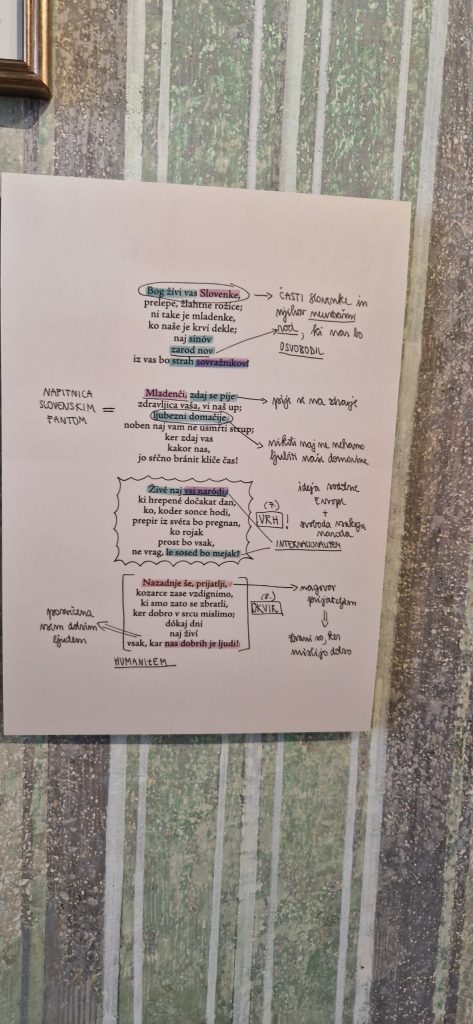 Bog žívi vas Slovenke,
prelepe, žlahtne rožice;
ni take je mladenke,
ko naše je krvi dekle;
naj sinóv
zarod nov
iz vas bo strah sovražnikov!
→ ČASTI Slovenke in
njihov
rod, ki nas bo
OSVOBODIL
NAPITNICA
SLOVENSKIM =
FANTOM
Mladenči, zdaj se pije
zdravljica vaša, vi naš up;
ljubezni domačije
noben naj vam ne usmŕti strup;
ker zdaj vas
kakor nas,
jo sŕčno bránit kliče čas!
→ pije se na zdravje
→ nikoli naj ne nehamo
ljubiti naše domovine
Živé naj vsi naródi,
ki hrepené dočakat dan,
ko, koder sonce hodi,
prepir iz svéta bo pregnan,
ko rojak
prost bo vsak,
ne vrag, le sosed bo mejak!
(7.)
VRH!
ideja
Evrope
+
svoboda vsakega
naroda
INTERNACIONALIZEM
Nazadnje še, prijatlji,
kozarce zase vzdignimo,
ki smo zato se zbratli,
ker dobro v srcu mislimo;
dókaj dni
naj živí
vsak, kar nas dobrih je ljudi!
(8.)
OKVIR
→ nagovor
prijateljem
⇓
zbrani so, ker
mislijo dobro
posvečena
vsem dobrim
ljudem
HUMANIZEM